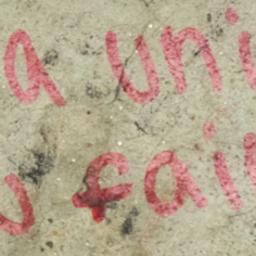 a uni
u fair